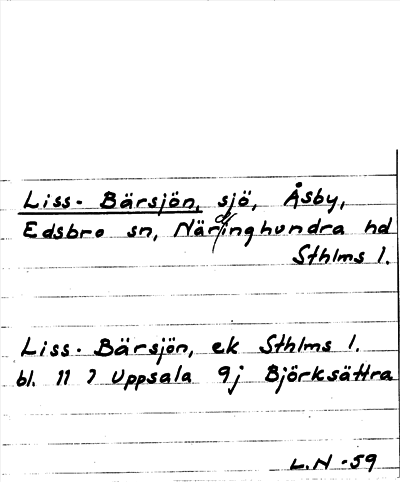 Liss- Bärsjön, sjö, Åsby,
Edsbro sn, Närdinghundra hd
Sthlms l.
Liss- Bärsjön, ek Sthlms l.
bl. 11 7 Uppsala 9j Björksättra
L.N -59